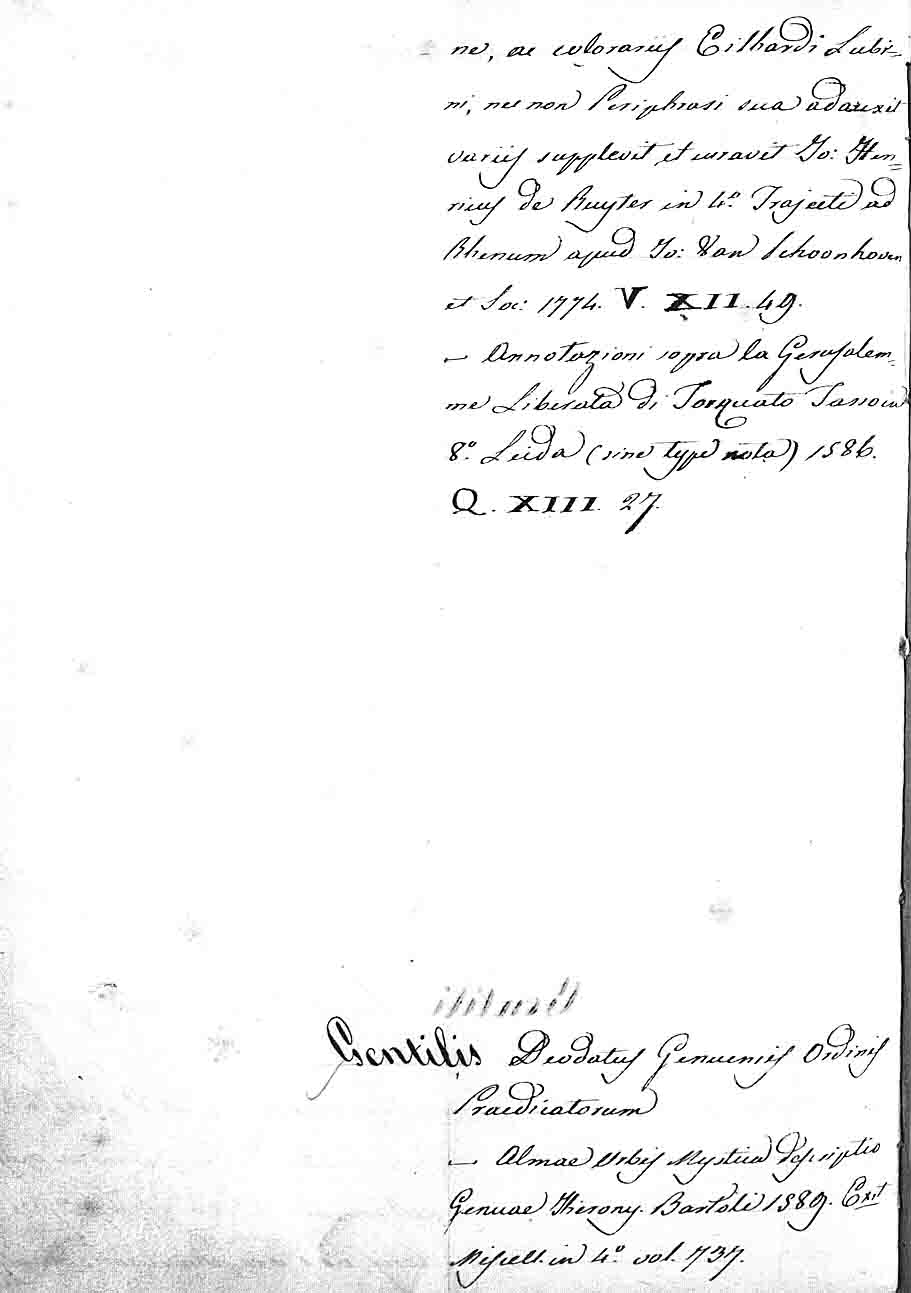 ne, ac colorariis Eilhardi Lubi=
ni, nec non Periphrasi sua adauxit
variis supplevit, et curavit Jo: Hen=
ricus de Ruyter in 4.º Trajecti ad
Rhenum apud Jo: Van Schoonhoven
et Soc: 1774. V. XII. 49.
— Annotazioni sopra la Gerusalem=
me Liberata di Torquato Tasso in
8.º Leida (sine typ. nota) 1586.
Q. XIII. 27.
Gentilis Deodatus Genuensis Ordinis
Praedicatorum
— Almae Urbis Mystica descriptio
Genuae Hierony. Bartoli 1589. Exit
Miscell. in 4.º vol. 737.